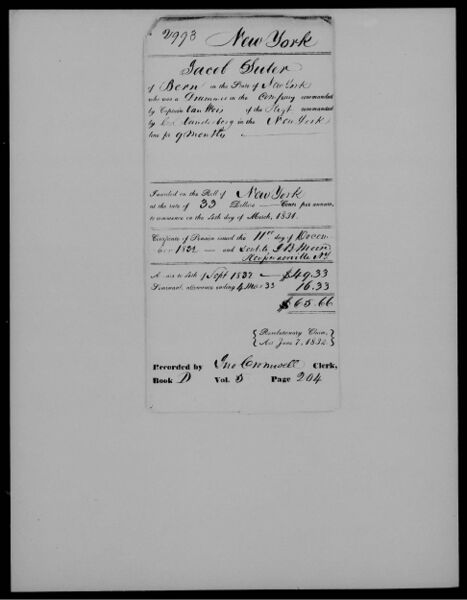 2993 New York
Jacob Suter
of Bern in the State of New York
who was a Drummer in the Company commanded
by Captain Van Ness of the Regt commanded
by Col Vanderberg in the New York
line for 9 months
Inscribed on the Roll of New York
at the rate of 33 Dollars Cents per annum,
to commence on the 4th day of March, 1831.
Certificate of Pension issued the 11th day of Decem
ber 1832 and sent to J B
N.Y.
Arrears to 4th of Sept 1832 $49.33
Semi-anl. allowance ending 4 Mar 33 16.33
$65.66
Revolutionary Claim,
Act June 7, 1832.
Recorded by Jno Cromwell Clerk,
Book D Vol. 5 Page 204